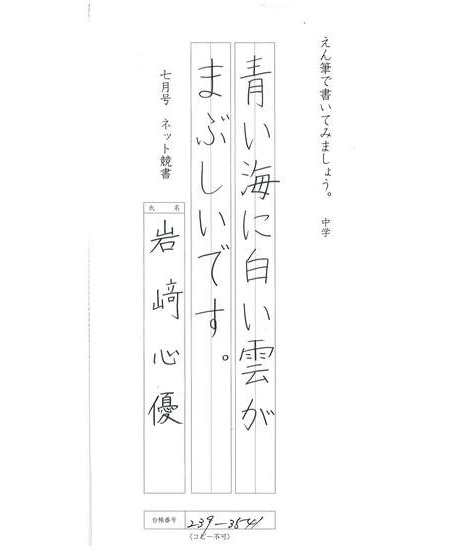 えん筆で書いてみましょう。
中学
青い海に白い雲が
まぶしいです。
七月号 ネット競書
氏名
岩﨑心優
台帳番号 239-3541
(コピー不可)